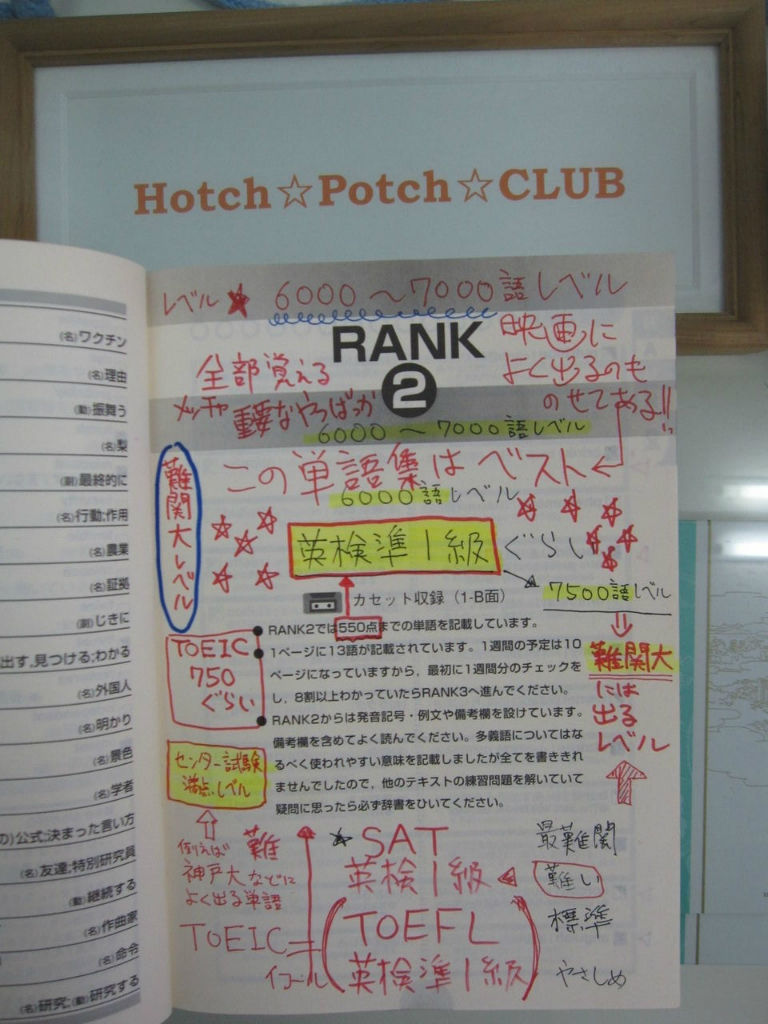 Hotch☆Potch☆CLUB
レベル ★ 6000〜7000語レベル
RANK
2
映画に
よく出るのも
のせてある!!
全部覚える
メッチャ 重要なやつばっか
6000〜7000語レベル
この単語集はベスト
6000語レベル
難関大レベル
英検準1級ぐらい
7500語レベル
難関大
には
出る
レベル
カセット収録（1-B面）
●RANK2では550点までの単語を記載しています。
●1ページに13語が記載されています。1週間の予定は10
ページになっていますから，最初に1週間分のチェックを
し，8割以上わかっていたらRANK3へ進んでください。
●RANK2からは発音記号・例文や備考欄を設けています。
備考欄を含めてよく読んでください。多義語についてはな
るべく使われやすい意味を記載しましたが全てを書ききれ
ませんでしたので，他のテキストの練習問題を解いていて
疑問に思ったら必ず辞書をひいてください。
TOEIC
750
ぐらい
センター試験
満点レベル
例えば
神戸大などに
よく出る単語
難
★SAT
英検1級
TOEIC=
イコール
(TOEFL
英検準1級)
最難関
難しい
標準
やさしめ
(名)ワクチン
(名)理由
(動)振舞う
(名)梨
(副)最終的に
(名)行動;作用
(名)農業
(名)証拠
(副)じきに
出す,見つける;わかる
(名)外国人
(名)明かり
(名)景色
(名)学者
の)公式;決まった言い方
(名)友達;特別研究員
(動)継続する
(名)作曲家
(名)命令
(名)研究;(動)研究する